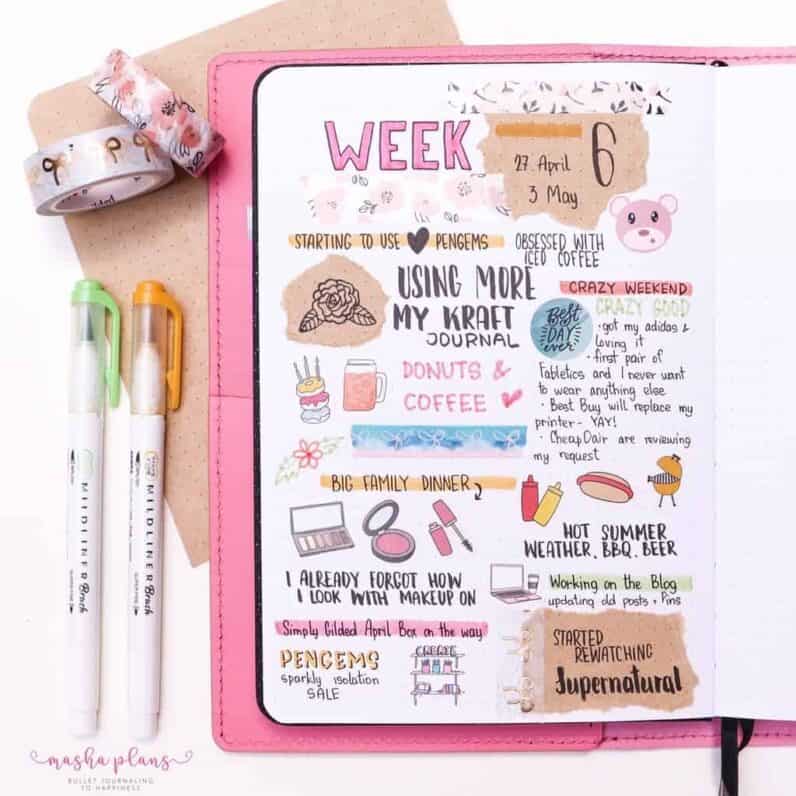 WEEK
27. April
3 May
6
STARTING TO USE PENGEMS
OBSESSED WITH
ICED COFFEE
USING MORE
MY KRAFT
JOURNAL
CRAZY WEEKEND
CRAZY GOOD
BEST
DAY
ever
• got my adidas &
loving it
• first pair of
Fabletics and I never want
to wear anything else
• Best Buy will replace my
printer - YAY!
• CheapOair are reviewing
my request
DONUTS &
COFFEE
BIG FAMILY DINNER
HOT SUMMER
WEATHER, BBQ, BEER
I ALREADY FORGOT HOW
I LOOK WITH MAKEUP ON
Working on the Blog
updating old posts + Pins
Simply Gilded April Box on the way
PENGEMS
sparkly isolation
SALE
CREATE
STARTED
REWATCHING
Supernatural
MILDLINER Brush
MILDLINER Brush
masha plans
BULLET JOURNALING
TO HAPPINESS